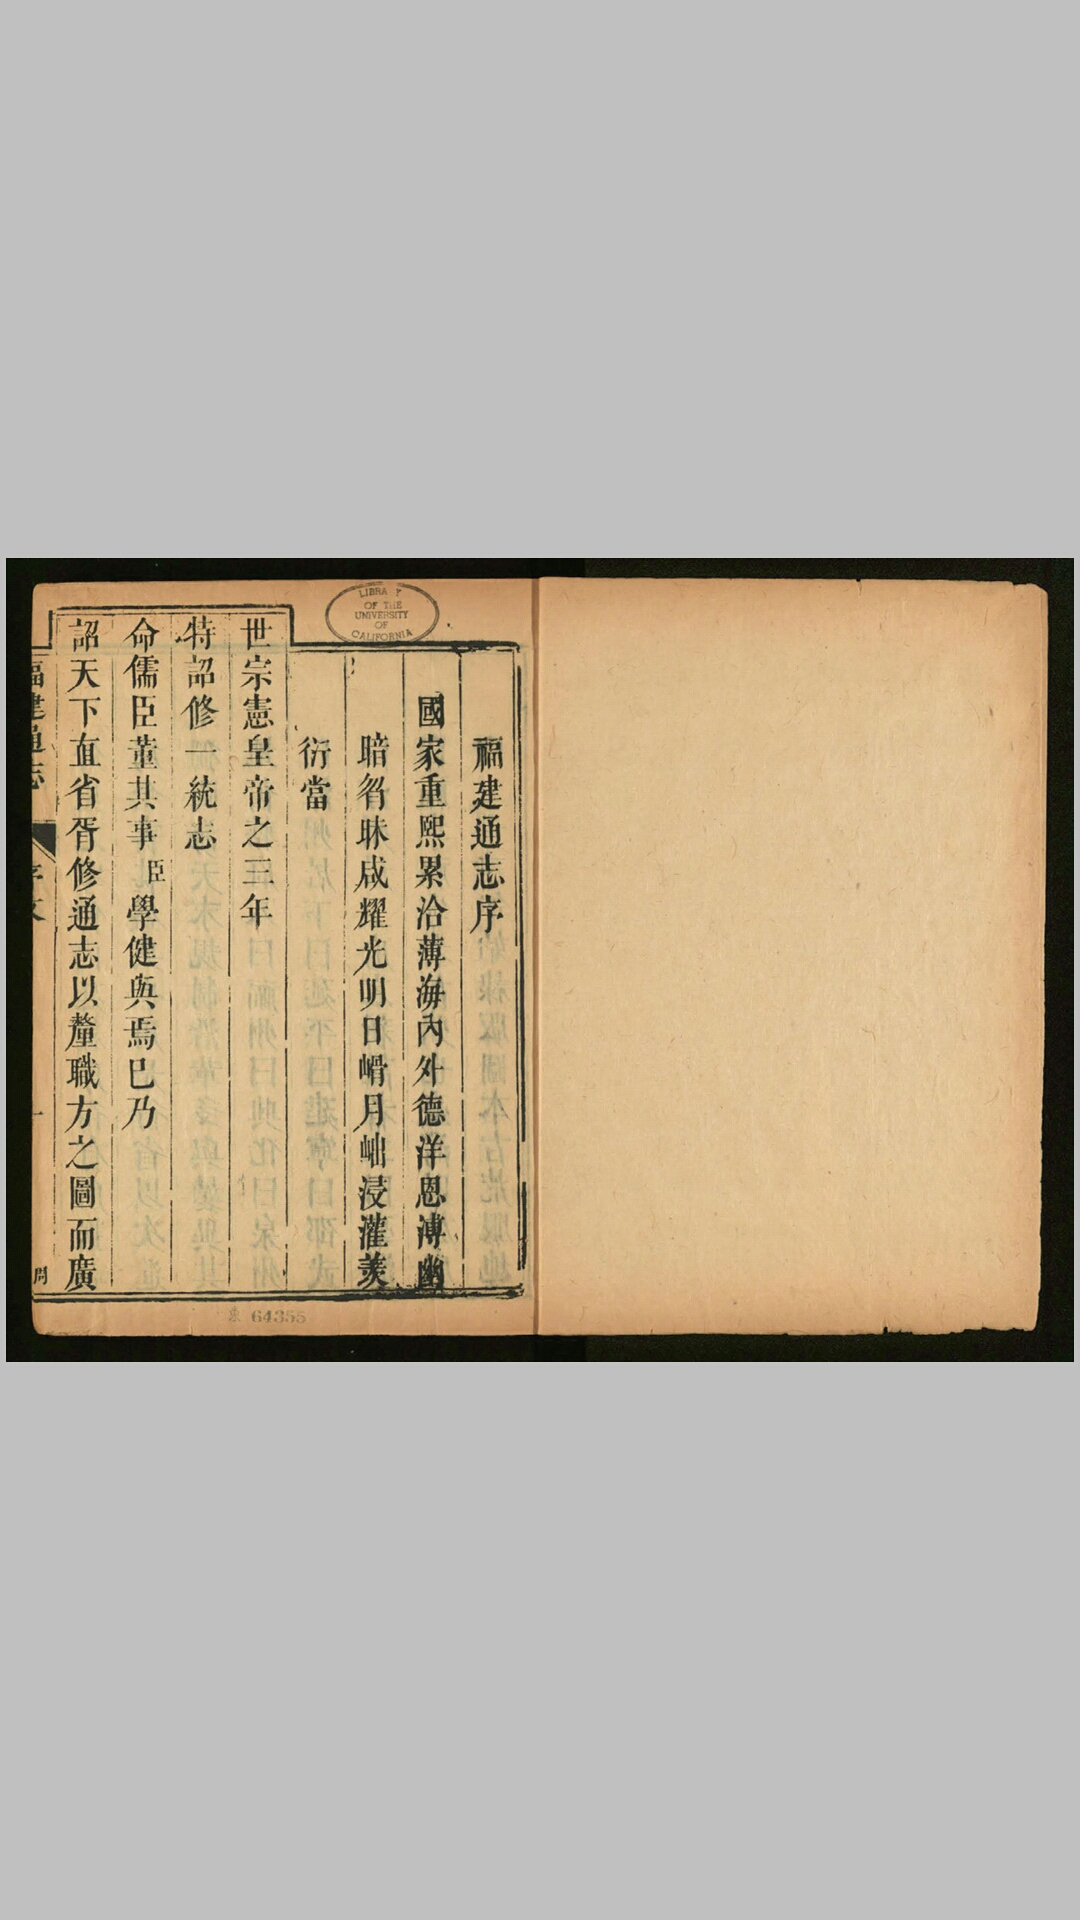 福建通志序
國家重熙累洽薄海內外德洋恩溥幽
暗曶昧咸耀光明日㟯月𡶐浸灌羨
衍當
世宗憲皇帝之三年
特詔修一統志
命儒臣董其事臣學健與焉已乃
詔天下直省胥修通志以釐職方之圖而廣
福建通志
序文
一
LIBRA Y
OF THE
UNIVERSITY
OF
CALIFORNIA
64355